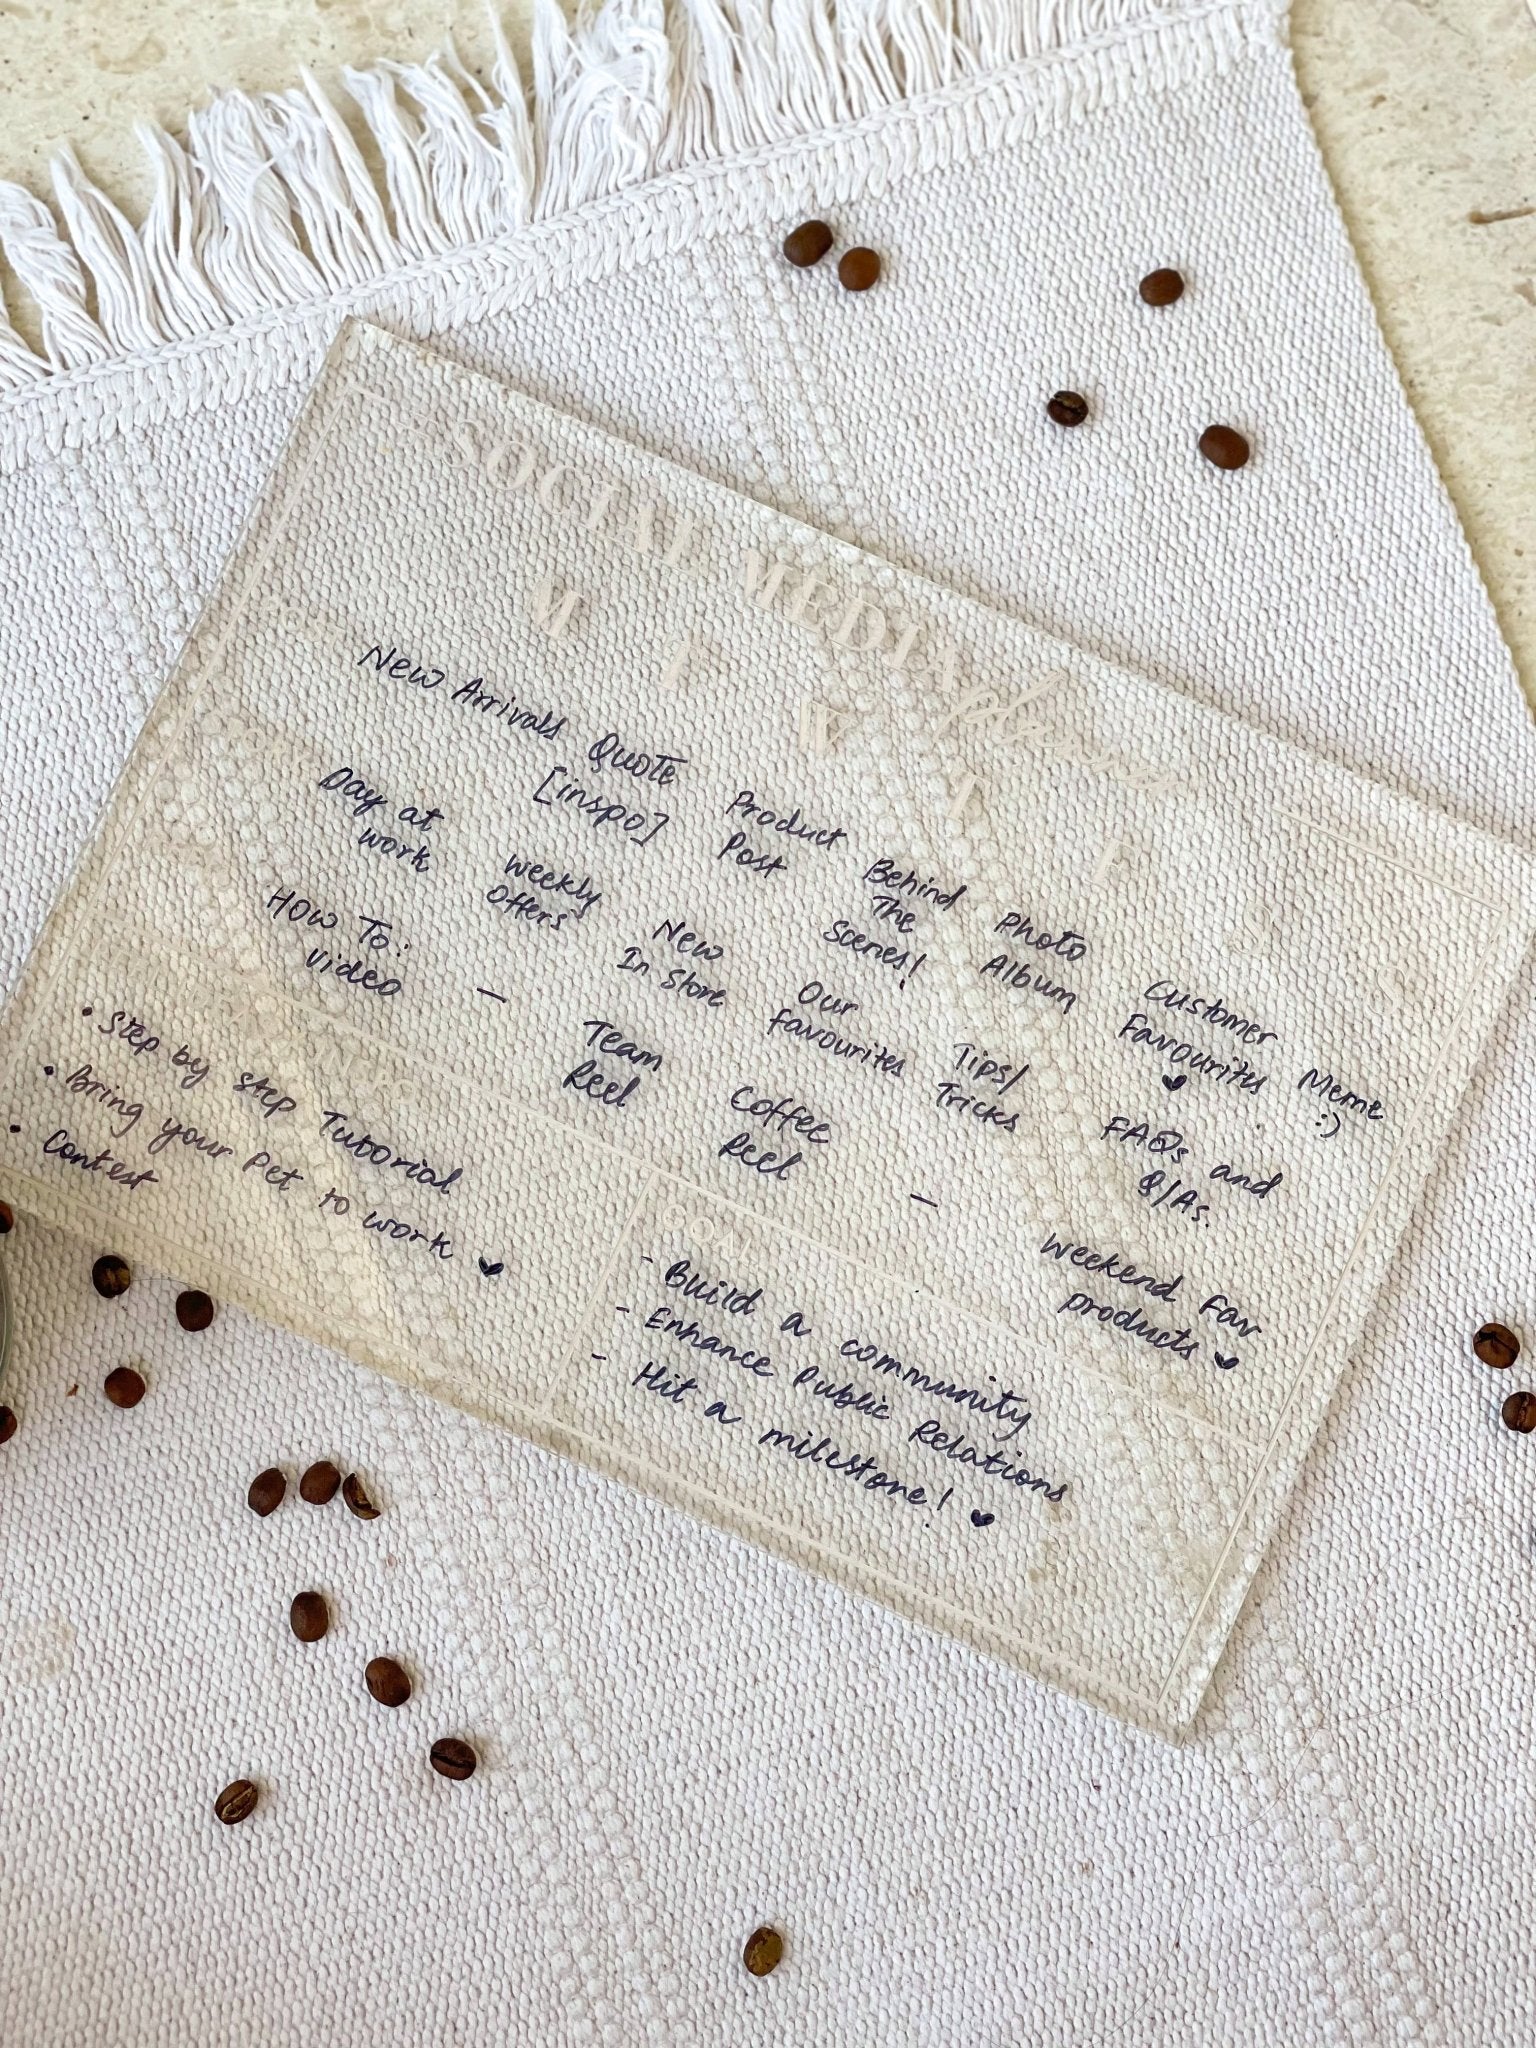 SOCIAL MEDIA
M T W T F
New Arrivals
Quote
[inspo]
Product
Post
Behind
The
Scenes!
Photo
Album
Customer
Favourites
♥
Meme
:)
Day at
work
Weekly
Offers
New
In Store
Our
favourites
Tips/
Tricks
FAQs and
Q/As.
How To:
Video
—
Team
Reel
Coffee
Reel
—
Weekend Fav
products ♥
• Step by step Tutorial
• Bring your Pet to work ♥
• Contest
GOAL
- Build a community
- Enhance Public Relations
- Hit a milestone! ♥